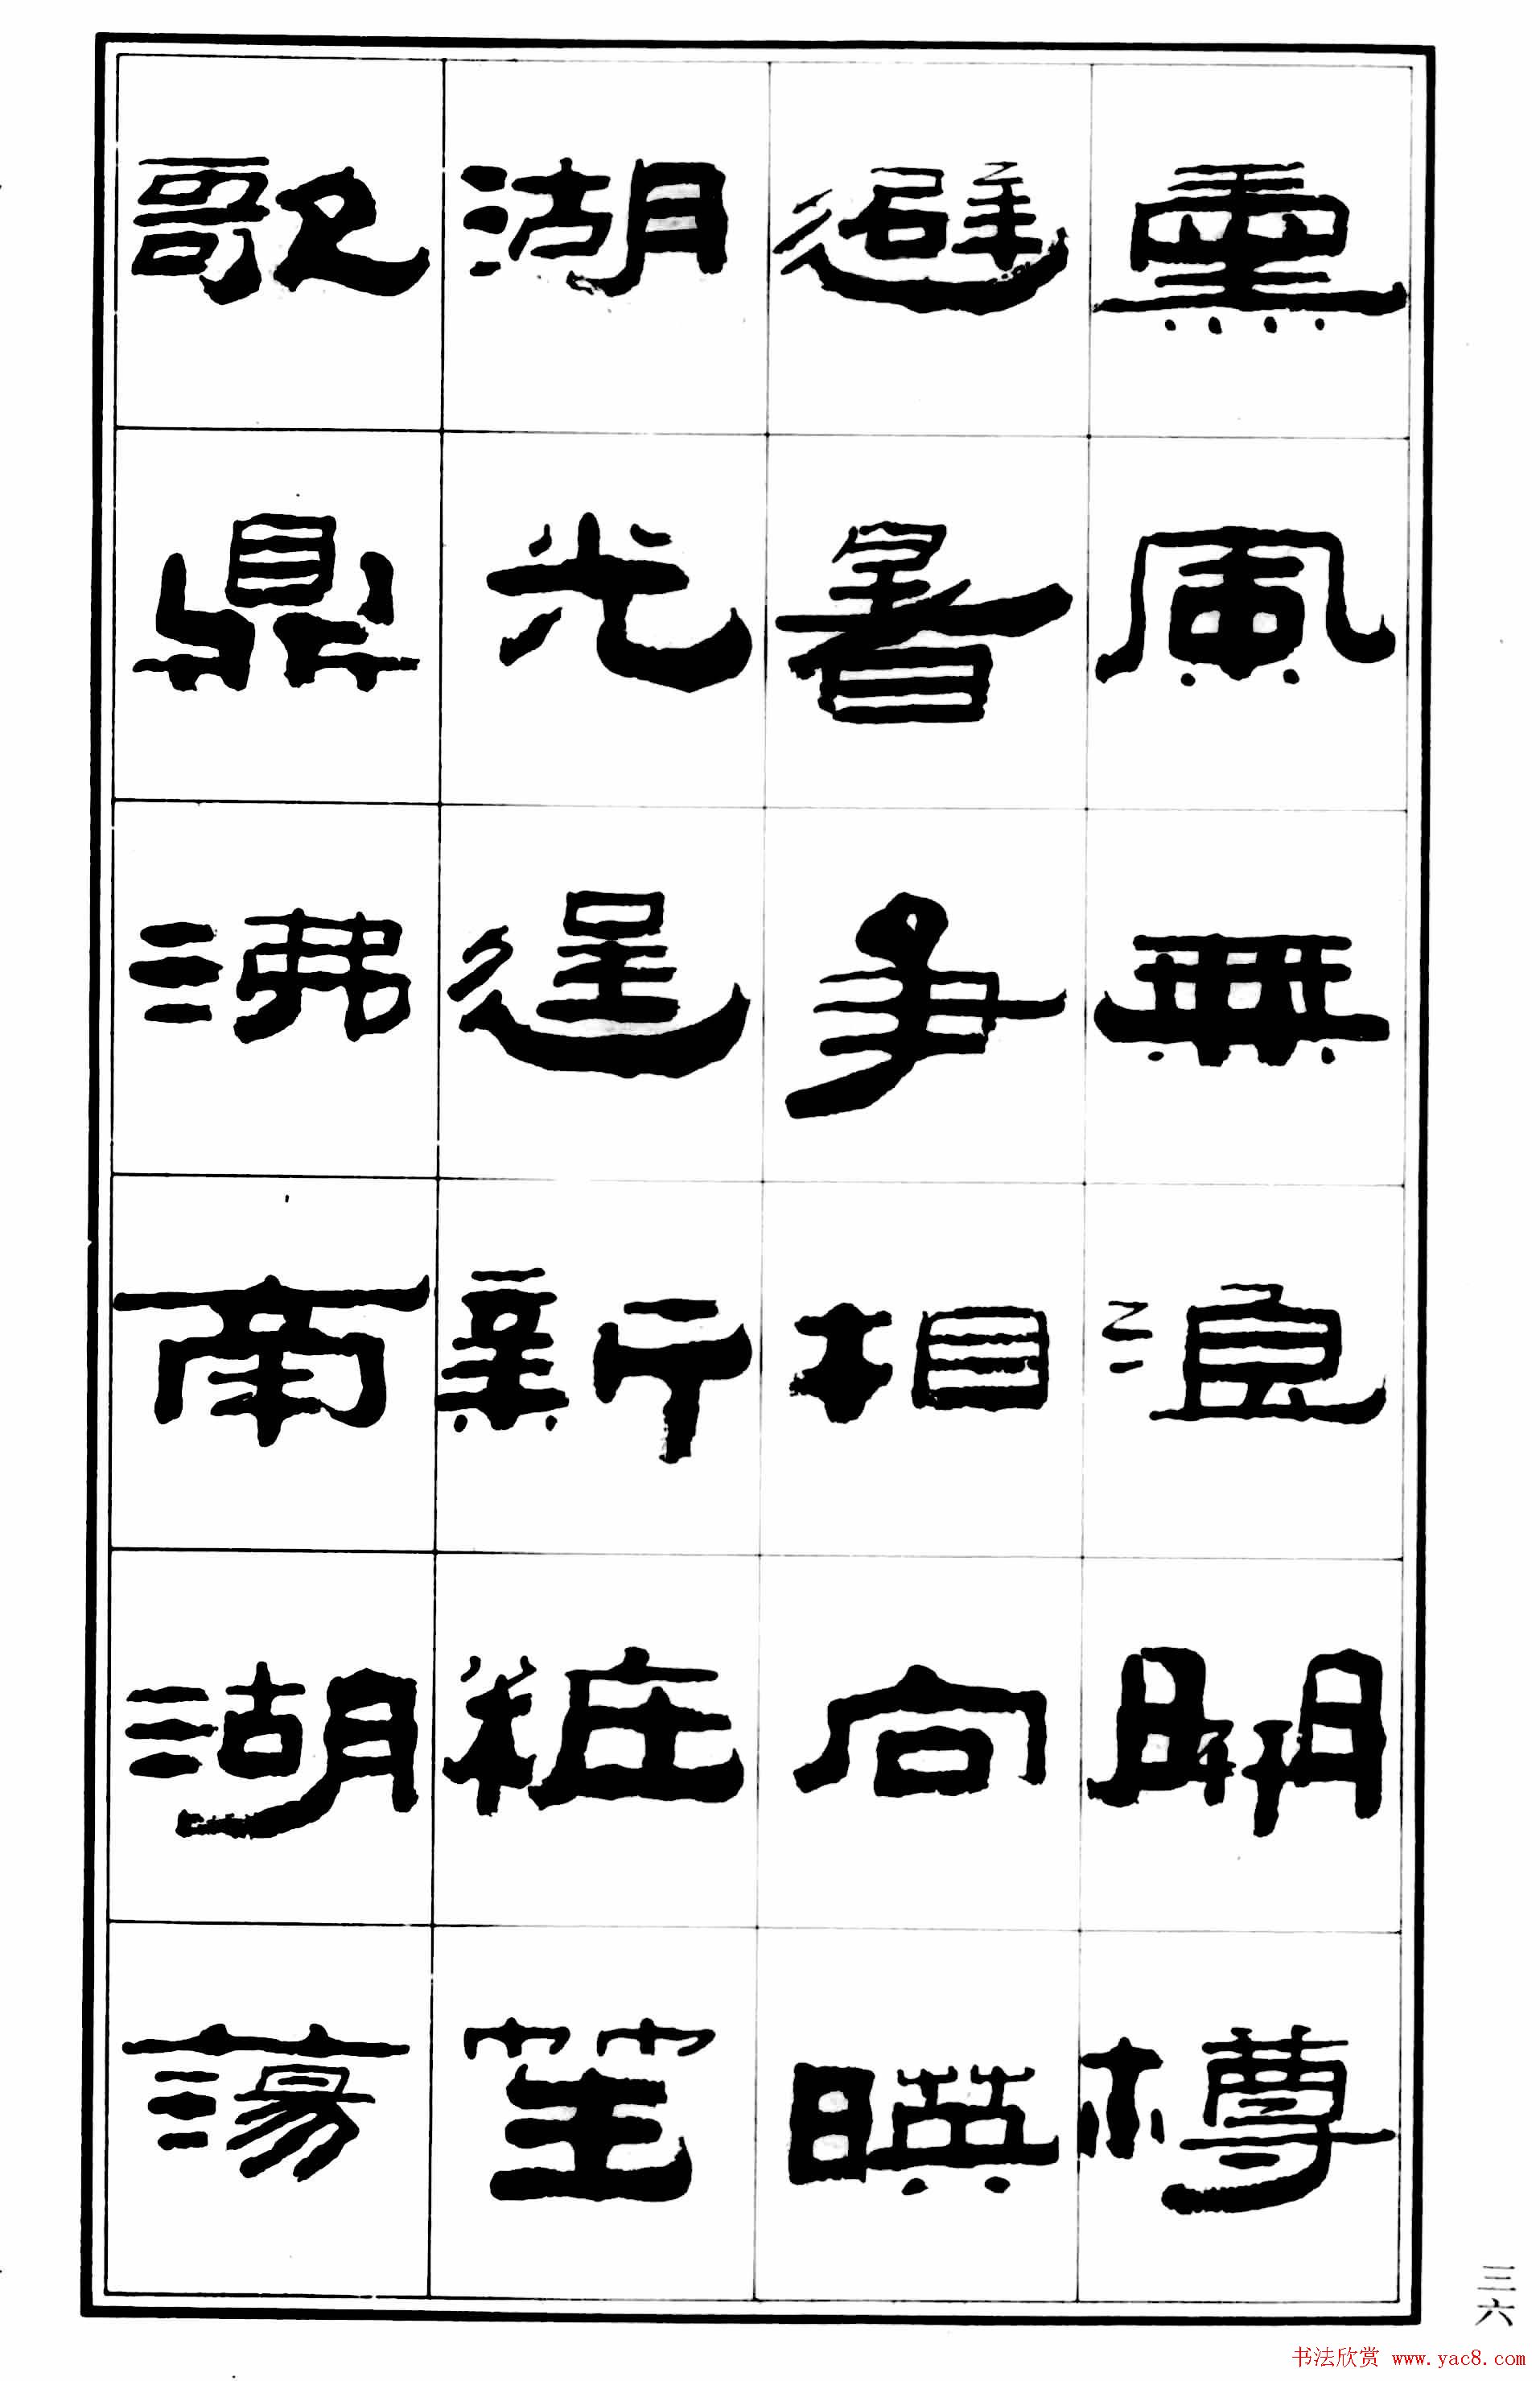 熏風無浪開樽
避暑爭相向暎
湖光逞新粧笙
歌鼎沸南湖蕩
三六
书法欣赏 www.yac8.com